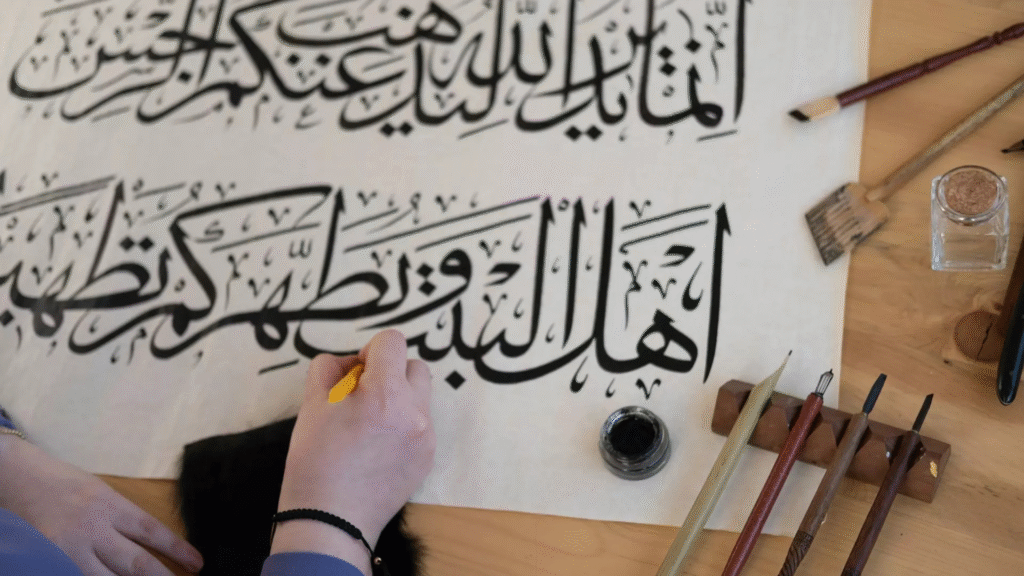 إنما يريد الله ليذهب عنكم الرجس
اهل البيت ويطهركم تطهيـ